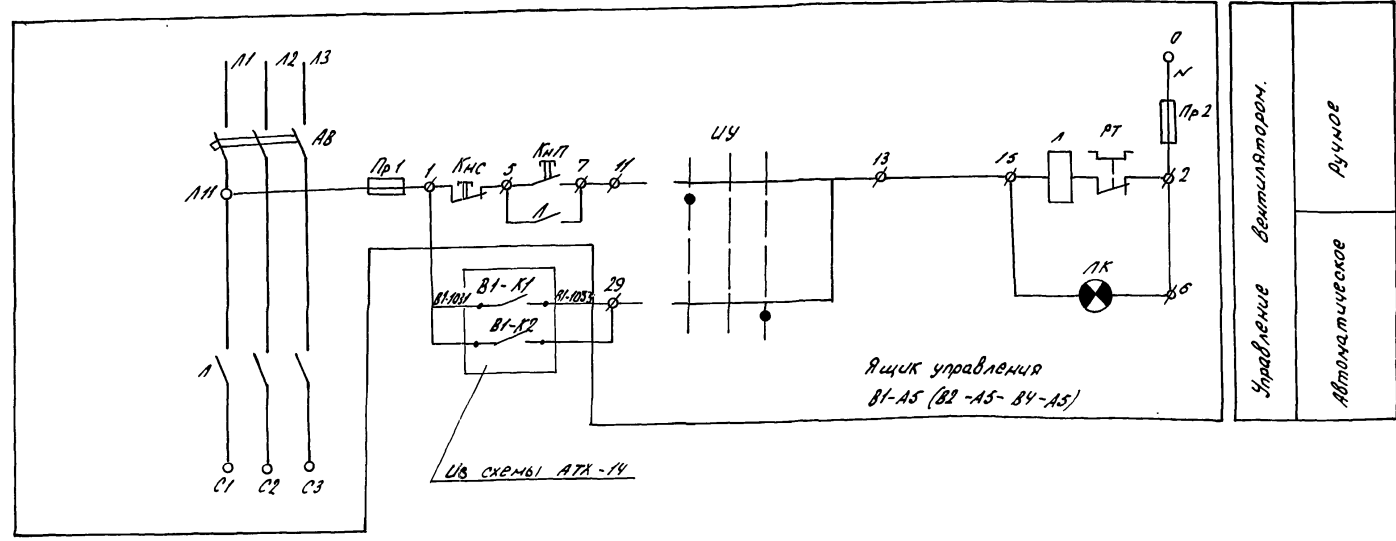 Л1 Л2 Л3
АВ
Л11
Пр1
1
КнС
5
КнП
7
11
Л
ИУ
13
15
Л
РТ
0
N
Пр2
2
В1-1031
В1-К1
29
В1-К2
ЛК
6
Л
С1 С2 С3
Из схемы АТХ-14
Ящик управления
В1-А5 (В2-А5-В4-А5)
Управление вентилятором.
Ручное
Автоматическое